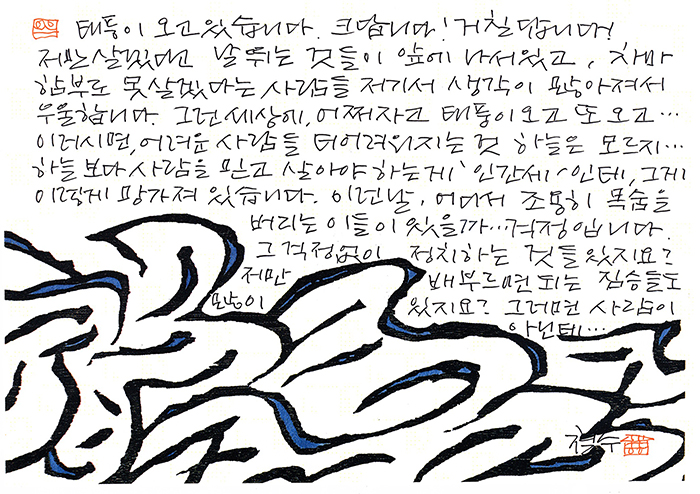 태풍이 오고있습니다. 크답니다! 거칠답니다!
저만살겠다고 날뛰는 것들이 앞에 나서있고, 차마
함부로 못살겠다는 사람들 저기서 생각이 많아져서
우울합니다. 그런세상에, 어쩌자고 태풍이오고 또 오고…
이러시면, 어려운 사람들 더어려워지는 것 하늘은 모르지…
하늘보다 사람을 믿고 살아야하는게 '인간세'인데, 그게
이렇게 망가져 있습니다. 이런날, 어디서 조용히 목숨을
버리는 이들이 있을까… 걱정입니다.
그 걱정없이 정치하는 것들 있지요?
저만 배부르면 되는 짐승들도
많이 있지요? 그러면 사람이
아닌데…
철수